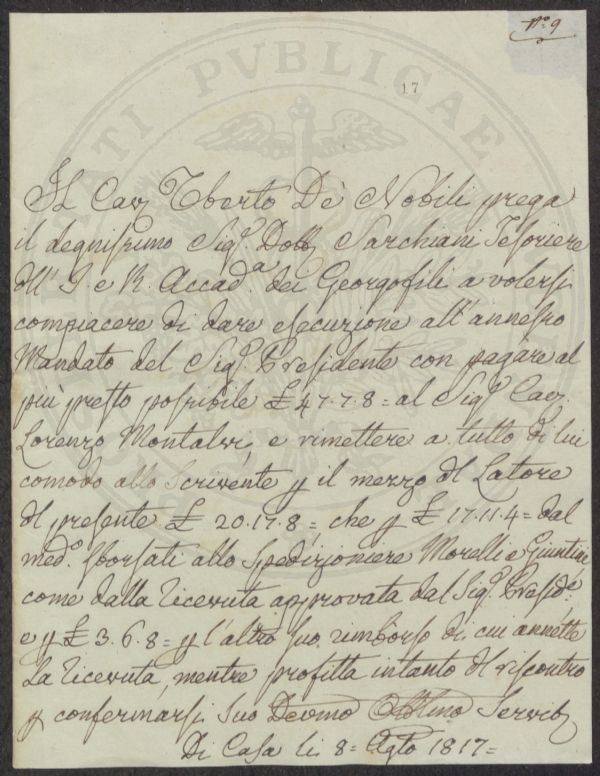 N.º 9
17
PUBLICAE
Il Cav. Tberto De' Nobili prega
il degnissimo Sig.r Dott. Sarchiani Tesoriere
dll' I. e R. Accad.a dei Georgofili a volersi
compiacere di dare esecuzione all'annesso
Mandato del Sig.r Presidente con pagare al
più presto possibile £ 47.7.8= al Sig.r Cav.
Lorenzo Montalvi, e rimettere a tutto di lui
comodo allo Scrivente p il mezzo dl Latore
dl presente £ 20.17.8,= che p £ 17.11.4= dal
med.o sborsati allo Spedizioniere Morelli e Giuntini
come dalla ricevuta approvata dal Sig.r Presid.e;
e p £ 3.6.8= p l'altro suo rimborso di cui annette
la ricevuta, mentre profitta intanto dl riscontro
p confermarsi Suo Devmo Obblmo Servit
Di Casa li 8= Agto 1817=